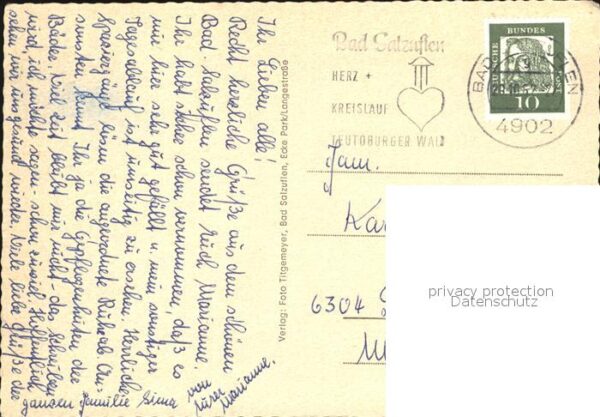 Ihr Lieben alle!
Recht herzliche Grüße aus dem schönen
Bad-Salzuflen sendet Euch Marianne.
Ihr habt sicher schon vernommen, daß es
mir hier sehr gut gefällt u. mein sonstiger
Tagesablauf ist umseitig zu ersehen. Herrliche
Spaziergänge lösen die angeordnete Ruhe ab. An-
sonsten kennt Ihr ja die Gepflogenheiten der
Bäder. Viel Zeit bleibt mir nicht - das Schreiben
wird, ich möchte sagen - schon zuviel. Hoffentlich
sehen wir uns gesund wieder. Viele liebe Grüße der
ganzen Familie
von
Eurer
Marianne.
Verlag: Foto Titgemeyer, Bad Salzuflen, Ecke Park/Langestraße
Bad Salzuflen
HERZ +
KREISLAUF
TEUTOBURGER WALD
DEUTSCHE BUNDESPOST
10
4902
Fam.
Kar
6304
privacy protection
Datenschutz